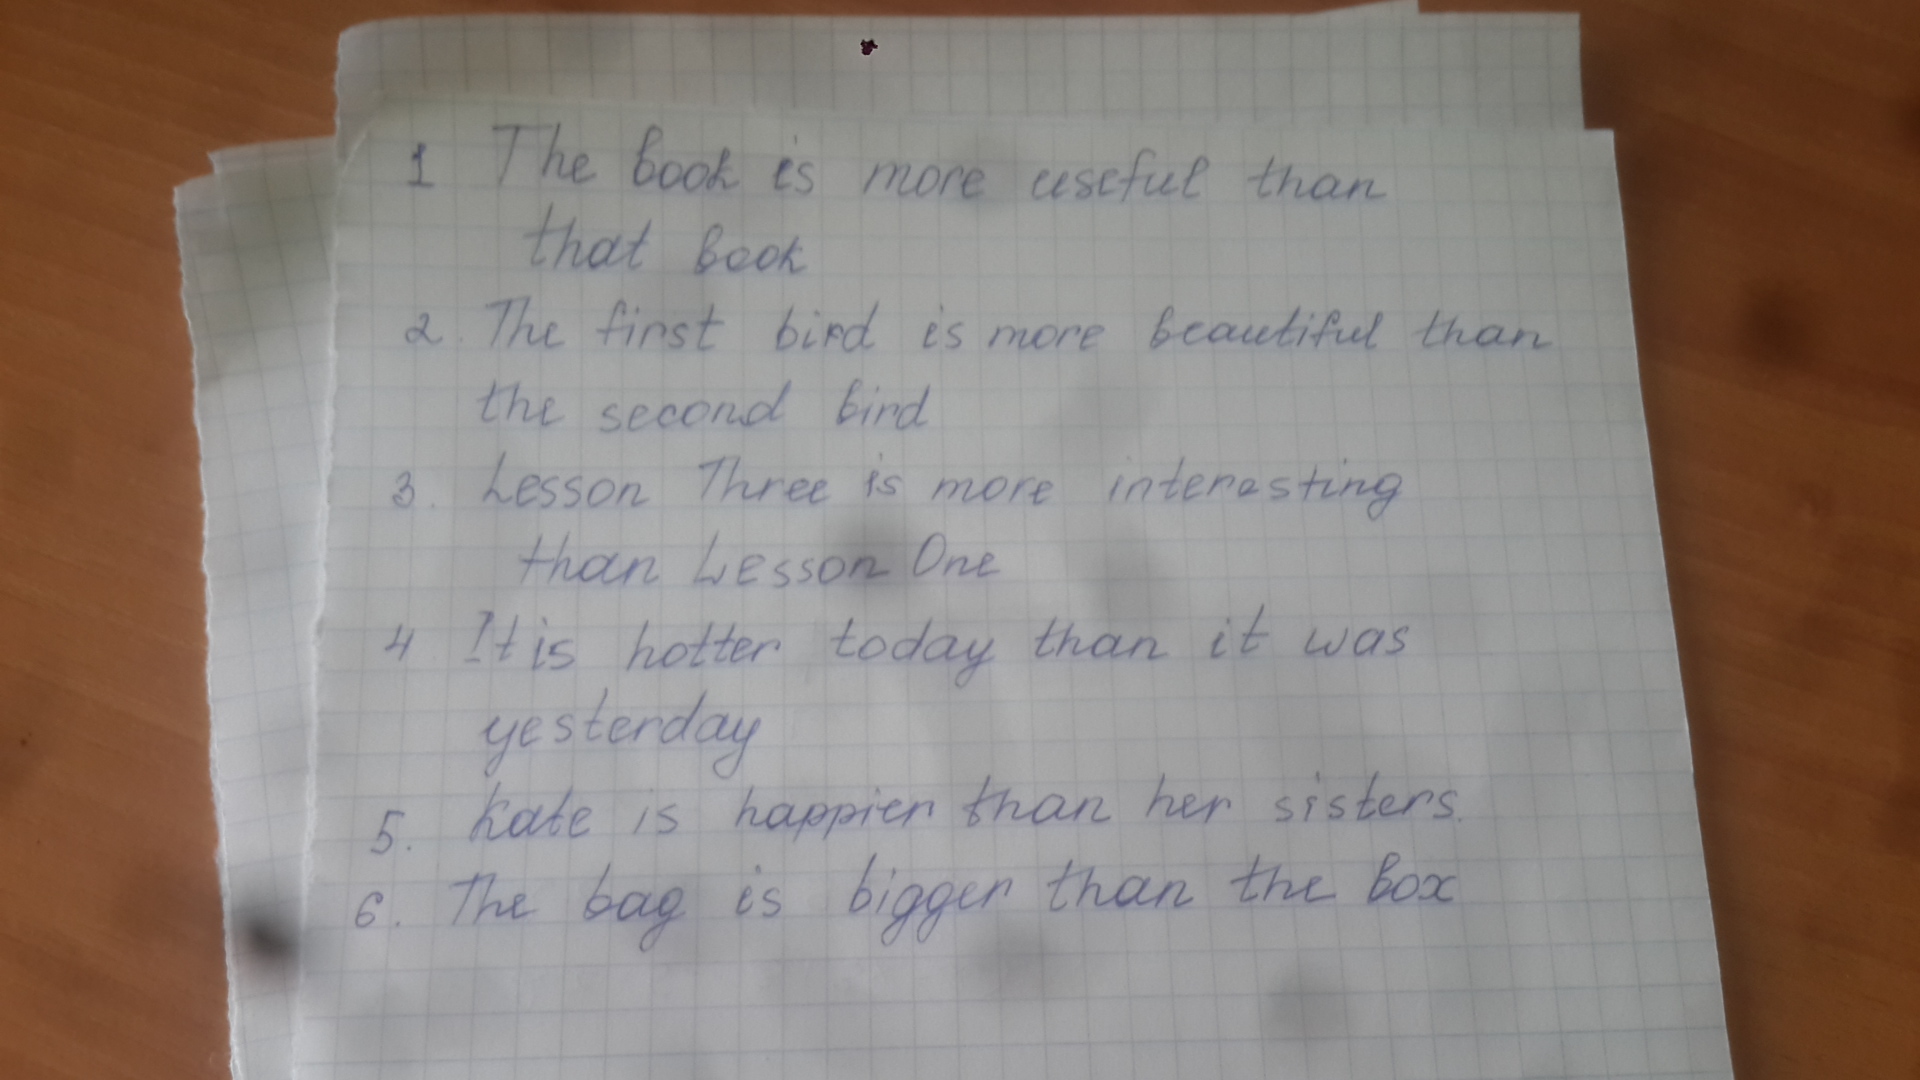 1 The book is more useful than
that book
2. The first bird is more beautiful than
the second bird
3. Lesson Three is more interesting
than Lesson One
4 It is hotter today than it was
yesterday
5. Kate is happier than her sisters.
6. The bag is bigger than the box